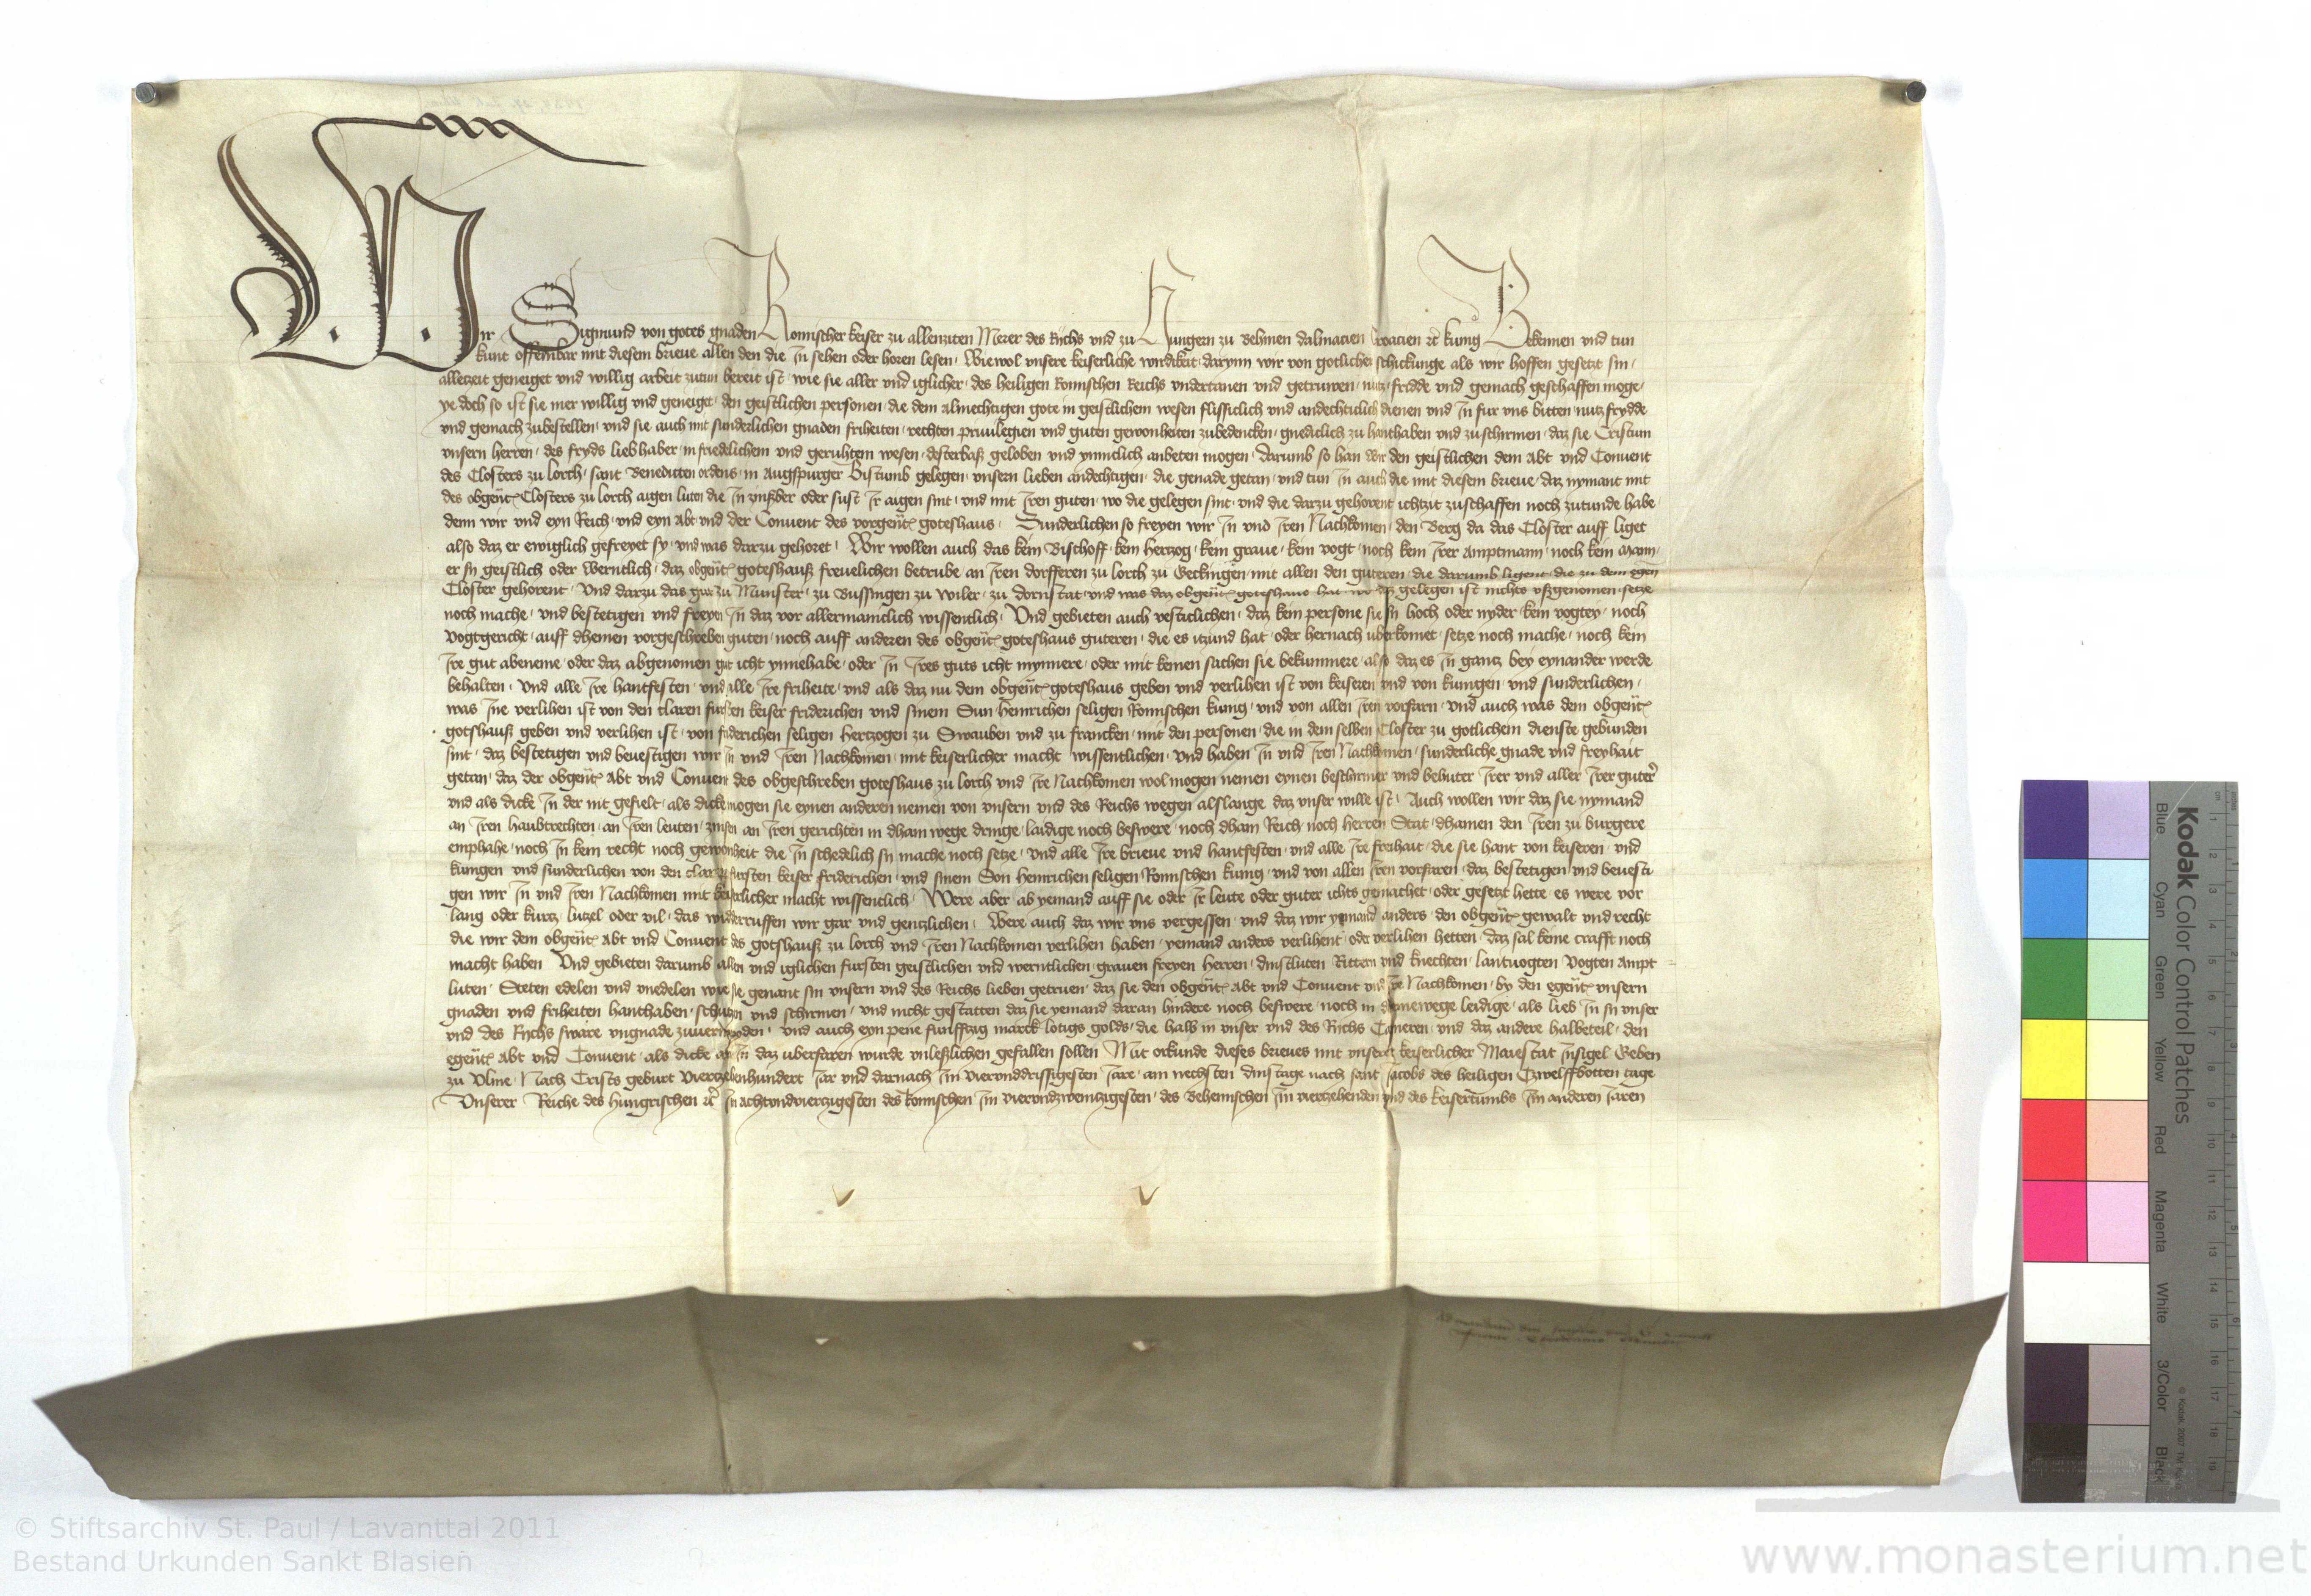 Wir Sigmund von gotes gnaden Romischer keiser zu allenziten Merer des Richs vnd zu Hungern zu Behmen dalmatien Croatien etc kunig Bekennen vnd tun
kunt offembar mit diesem brieue allen den die In sehen oder horen lesen · Wiewol vnsere keiserliche wirdikeit · darynn wir von gotlicher schickunge als wir hoffen gesetzt sin ·
alletzeit geneiget vnd willig arbeit zutun bereit ist · wie sie aller vnd iglicher · des heiligen Romischen Reichs vndertanen vnd getruwen · nutz · fridde vnd gemach geschaffen moge ·
ye doch so ist sie mer willig vnd geneiget · den geistlichen personen · die dem almechtigen gote in geistlichem wesen flissiclich vnd andechticlich dienen vnd In fur vns bitten · nutz frydde
vnd gemach zubestellen · vnd sie auch mit sunderlichen gnaden friheiten · rechten priuilegien vnd guten gewonheiten zubedencken · gnediclich zu hanthaben vnd zuschirmen · daz sie Cristum
vnsern herren · des fryds liebhaber · in friedelichem vnd geruhtem wesen · desterbaß geloben vnd ynniclich anbeten mogen · darumb so han wir den geistlichen dem Abt vnd Conuent
des Closters zu lorch · sant Benedicten ordens · in Augspurger Bistumb gelegen · vnsern lieben andechtigen · die genade getan · vnd tun In auch die mit diesem brieue · daz nymant mit
des obgent Closters zu lorch aigen luten die In zinßber oder sust Ir aigen sint · vnd mit Iren guten · wo die gelegen sint · vnd die darzu gehorent ichtzit zuschaffen noch zutunde habe ·
denn wir vnd eyn Reich · vnd eyn Abt vnd der Conuent des vorgent goteshaus · Sunderlichen so freyen wir In vnd Iren Nachkomen · den Berg da das Closter auff liget
also daz er ewiglich gefreyet sy · vnd was darzu gehoret · Wir wollen auch das kein Bischoff · kein hertzog · kein graue · kein vogt · noch kein Irer Amptmann · noch kein mann ·
er sy geistlich oder werntlich · daz obgent goteshauß freuelichen betrube an Iren dorfferen zu lorch zu Geckingen · mit allen den guteren · die darumb ligent · die zu dem egen
Closter gehorent · Vnd darzu das gut zu Munster · zu Bussingen zu wiler · zu dornstat · vnd was daz obgent goteshaus hat wo daz gelegen ist nichts vßgenomen · setze
noch mache · vnd bestetigen vnd freyen In daz vor allermaniclich wissentlich · Vnd gebieten auch vesticlichen · daz kein persone sie sy hoch oder nyder · kein vogtey · noch
Vogtgericht · auff dheinen vorgeschreben guten · noch auff anderen des obgent goteshaus guteren · die es itzund hat · oder hernach vberkomet · setze noch mache · noch kein
Ire gut abeneme · oder daz abgenomen gut icht ynnehabe · oder In Ires guts icht mynnere · oder mit keinen sachen sie bekummere · also daz es In gantz bey eynander werde
behalten · Vnd alle Ire hantfesten · vnd alle Ire friheite · vnd als daz nu dem obgent goteshaus geben vnd verlihen ist · von keiseren vnd von kunigen · vnd sunderlichen ·
was Ine verlihen ist von den claren fursten keiser friderichen vnd sinem Sun heinrichen seligen Romischen kunig · vnd von allen Iren vorfarn · vnd auch was dem obgent
gotshauß geben vnd verlihen ist · von friderichen seligen hertzogen zu Swauben vnd zu francken · mit den personen · die in dem selben Closter zu gotlichem dienste gebunden
sint · daz bestetigen vnd beuestigen wir In vnd Iren Nachkomen · mit keiserlicher macht wissentlichen · Vnd haben In vnd Iren Nachkomen · sunderliche gnade vnd freyhait
getan · daz der obgent Abt vnd Conuent des obgeschreben goteshaus zu lorch vnd Ire Nachkomen wol mogen nemen eynen beschirmer vnd behuter Irer vnd aller Irer guter
vnd als dicke In der nit gefielt · als dicke mogen sie eynen anderen nemen von vnsern vnd des Reichs wegen alslange daz vnser wille ist · Auch wollen wir daz sie nymand
an Iren haubtrechten · an Iren leuten · zinsen an Iren gerichten in dham wege dringe · laidige noch beswere · noch dham Reich · noch herren Stat · dhamen den Iren zu burgere
emphahe · noch In kein recht noch gewonheit die In schedelich sy mache noch setze · Vnd alle Ire brieue vnd hantfesten · vnd alle Ire frihait · die sie hant von keiseren · vnd
kungen vnd sunderlichen von den claren fursten keiser friderichen · vnd sinem Son heinrichen seligen Romischen kunig · vnd von allen Iren vorfaren · daz bestetigen vnd beuesti
gen wir In vnd Iren Nachkomen mit keiserlicher macht wissentlich · Were aber ab yemand auff sie oder Ir leute oder guter ichts gemachet · oder gesetzt hette · es were vor
lang oder kurtz · lutzel oder vil · das widerruffen wir gar vnd gentzlichen · Were auch daz wir vns vergessen · vnd daz wir yemand anders · den obgent gewalt vnd recht
die wir dem obgent Abt vnd Conuent des gotshauß zu lorch vnd Iren Nachkomen verlihen haben · yemand anders verlihent · oder verlihen hetten · daz sal keine crafft noch
macht haben Vnd gebieten darumb allen vnd iglichen fursten geistlichen vnd werntlichen · grauen freyen herren · dinstluten Rittern vnd knechten · lantuogten Vogten Ampt
luten · Steten edelen vnd vnedelen wie sie genant sin vnsern vnd des Reichs lieben getruen · daz sie den obgent Abt vnd Conuent vnd Ire Nachkomen · by den egent vnsern
gnaden vnd friheiten hanthaben · schutzen vnd schirmen · vnd nicht gestatten daz sie yemand daran hindere noch beswere · noch in deinewege leidige · als lieb In sy vnser
vnd des Richs sware vngnade zuuermyden · vnd auch eyn pene funfftzig marck lotigs golds · die halb in vnser vnd des Richs Cameren · vnd daz andere halbeteil · den
egent Abt vnd Conuent · als dicke als In daz vberfaren wurde vnleßlichen gefallen sollen Mit orkunde dieses brieues mit vnserer keiserlicher Maiestat Insigel Geben
zu Vlme · Nach Crists geburt Viertzehenhundert Iar vnd darnach Im Vierunddrissigesten Iare · am nechsten dinstage nach sant Iacobs des heiligen Czwelffbotten tage
Vnserer Reiche des hungrischen etc Im achtvndviertzigesten des Romischen Im viervndzwentzigesten · des Behemischen Im viertzehenden vnd des keisertumbs Im anderen Iaren
Kodak Color Control Patches
Blue Cyan Green Yellow Red Magenta White 3/Color Black
© Kodak, 2007
© Stiftsarchiv St. Paul / Lavanttal 2011
Bestand Urkunden Sankt Blasien
www.monasterium.net